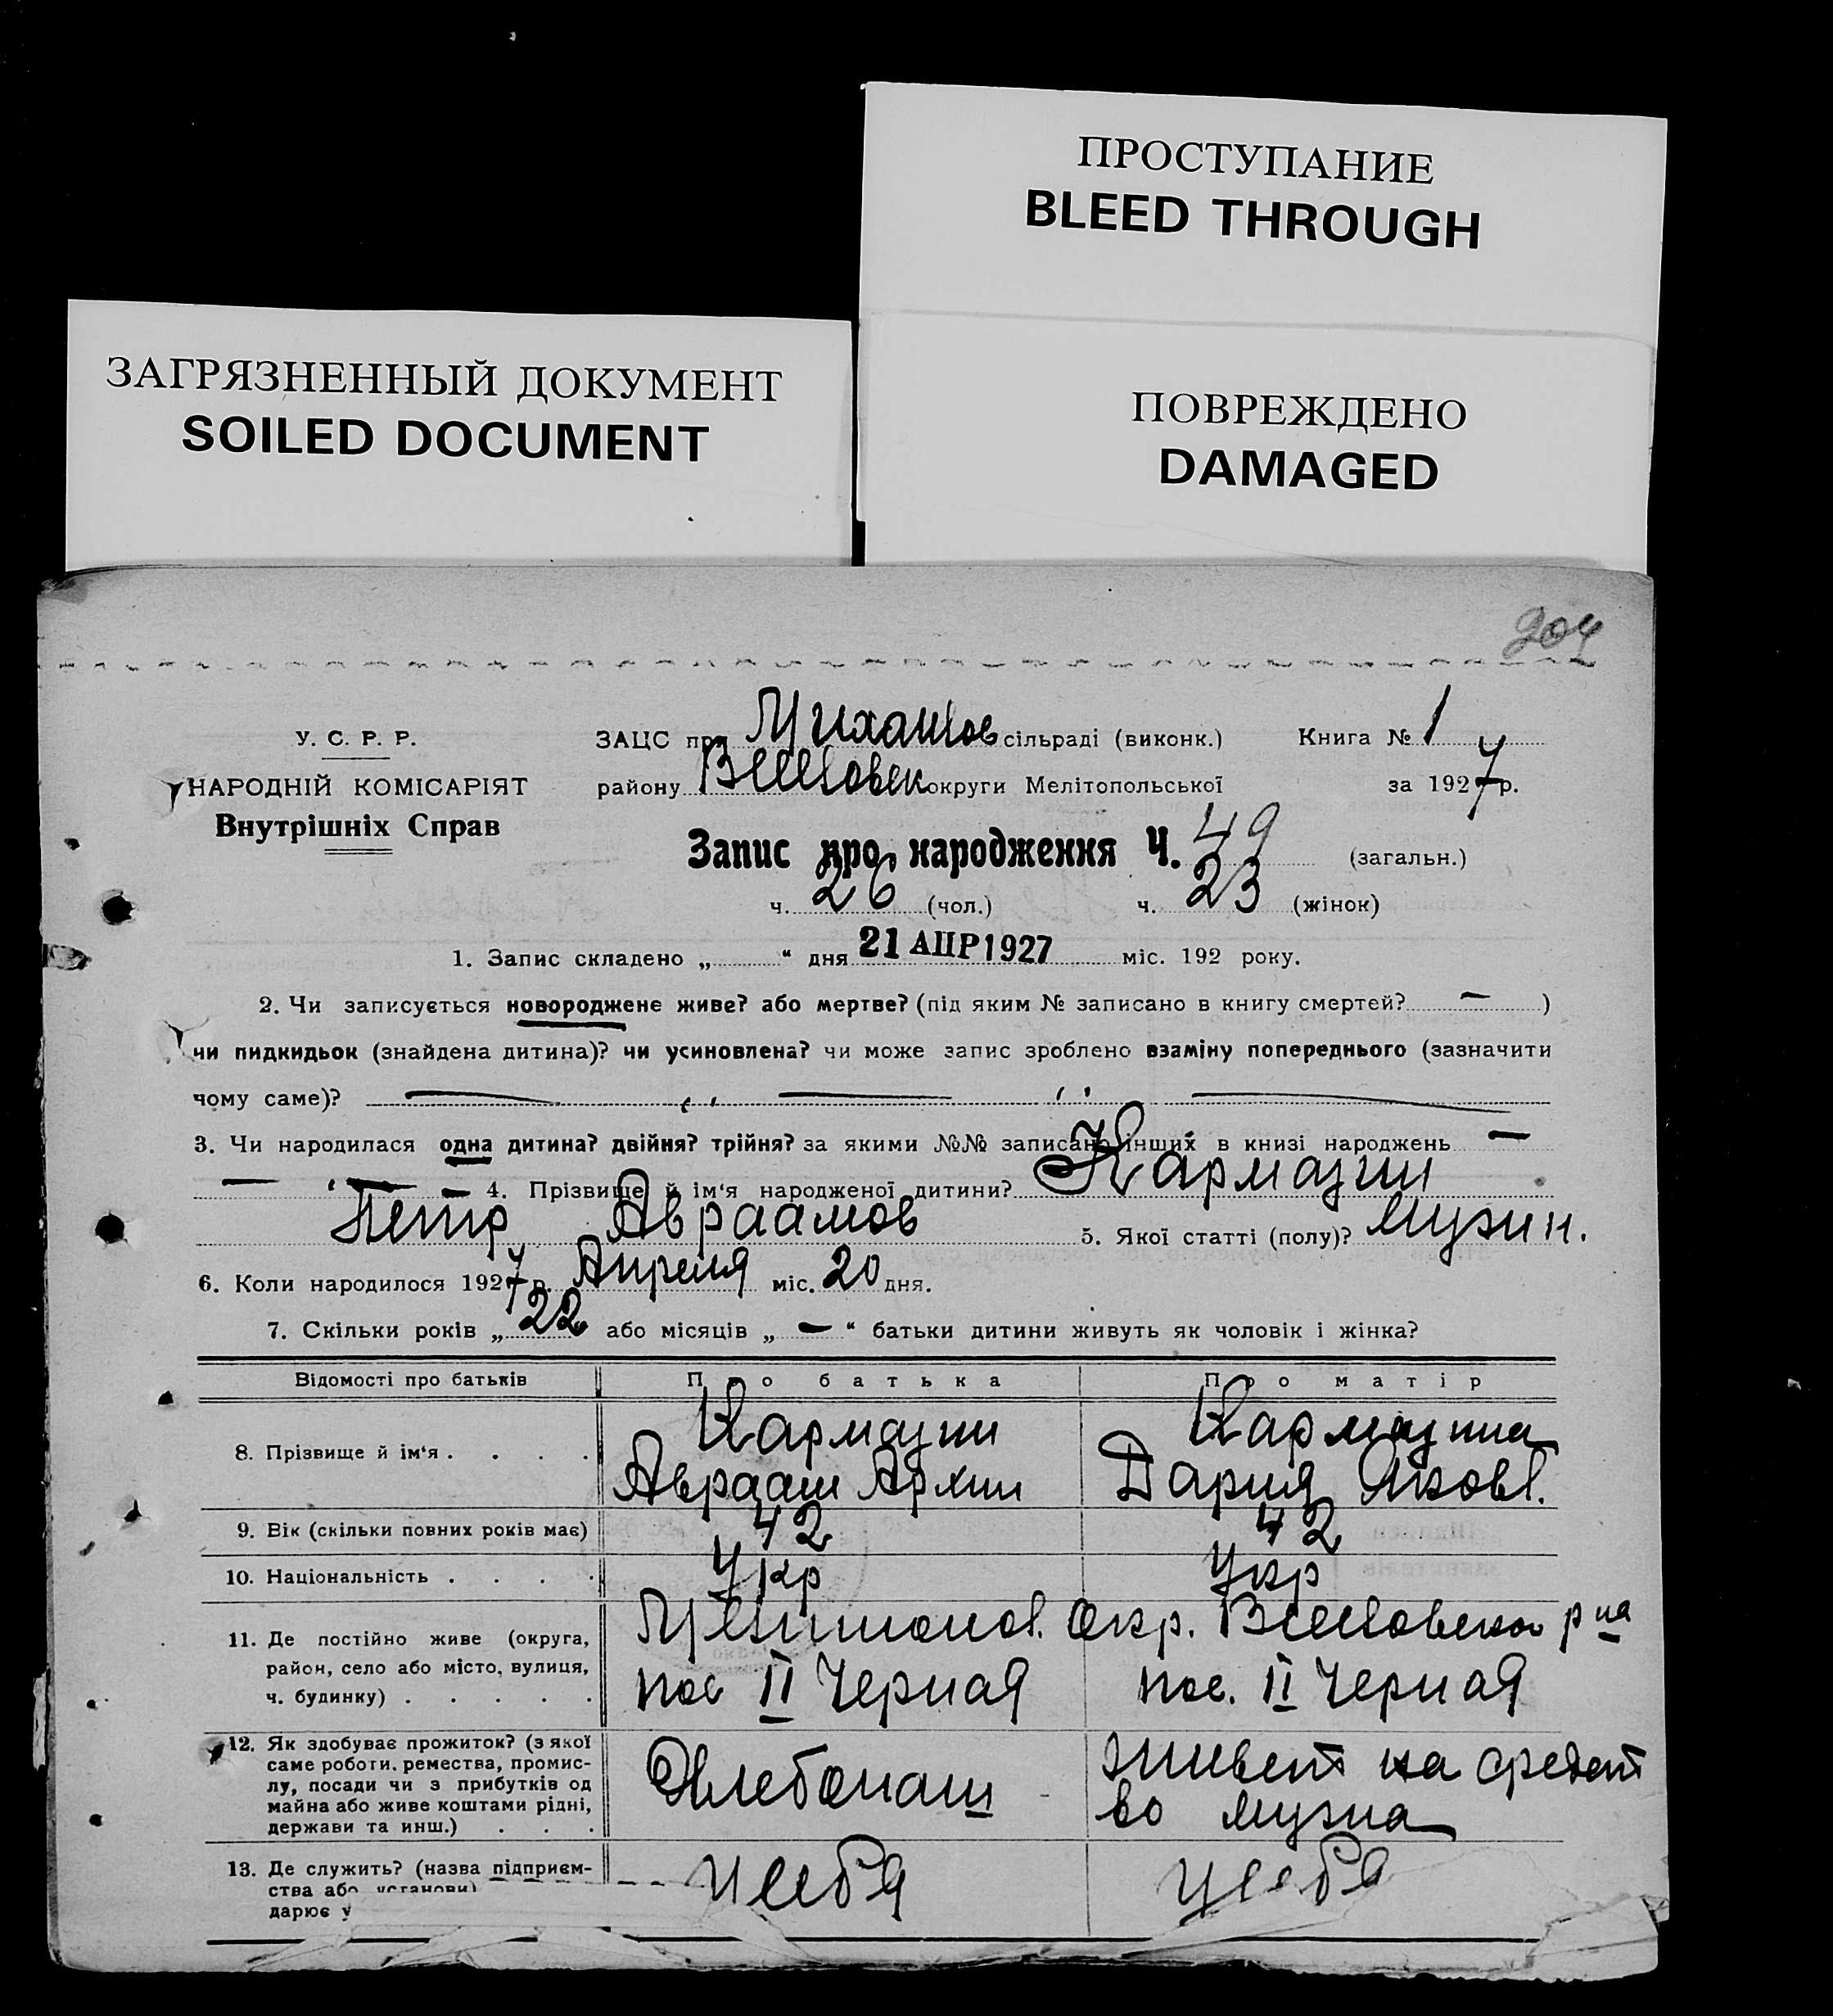 ПРОСТУПАНИЕ
BLEED THROUGH
ЗАГРЯЗНЕННЫЙ ДОКУМЕНТ
SOILED DOCUMENT
ПОВРЕЖДЕНО
DAMAGED
204
У. С. Р. Р.
НАРОДНІЙ КОМІСАРІЯТ
Внутрішніх Справ
ЗАЦС при Михайлов сільраді (виконк.) Книга № 1
району округи Мелітопольської за 1927 р.
Запис про народження Ч. 49 (загальн.)
ч. 26 (чол.) ч. 23 (жінок)
1. Запис складено „ “ дня 21 АПР 1927 міс. 192 року.
2. Чи записується новороджене живе? або мертве? (під яким № записано в книгу смертей? — )
чи пидкидьок (знайдена дитина)? чи усиновлена? чи може запис зроблено взаміну попереднього (зазначити
чому саме)? — „ — „ —
3. Чи народилася одна дитина? двійня? трійня? за якими №№ записано інших в книзі народжень —
— „ — 4. Прізвище й ім'я народженої дитини? Кармазин
Петр Авраамов 5. Якої статті (полу)? мужч.
6. Коли народилося 1927 р. Апреля міс. 20 дня.
7. Скільки років „ 22 або місяців „ — “ батьки дитини живуть як чоловік і жінка?
Відомості про батьків Про батька Про матір
8. Прізвище й ім'я . . . . Кармазин Кармазина
Авраам Архип Дария Яковл.
9. Вік (скільки повних років має) 42 42
10. Національність . . . . Укр Укр
11. Де постійно живе (округа, район, село або місто, вулиця, ч. будинку) . . . . . Мелитопол. Окр. Веселовского р на
пос II Черная пос. II Черная
12. Як здобуває прожиток? (з якої саме роботи, ремества, промислу, посади чи з прибутків од майна або живе коштами рідні, держави та инш.) . . . Хлебопаш живет на средст
во мужа
13. Де служить? (назва підприємства або установи) У себя У себя
дарює у